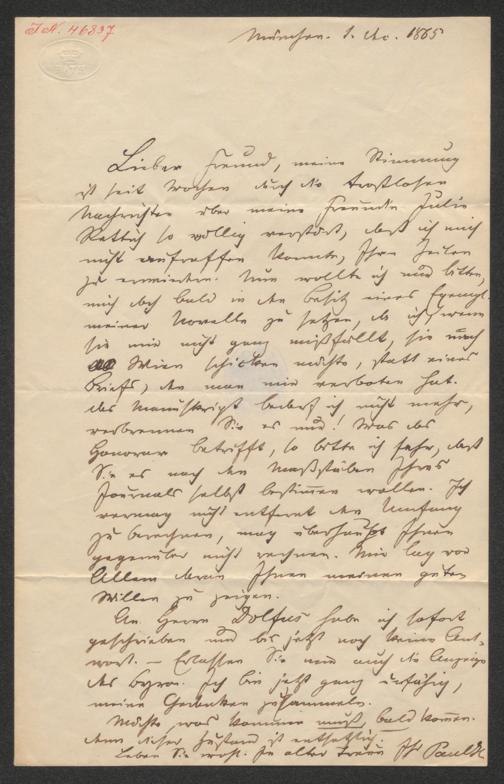 J.N. 46837
München. 1. Dec. 1865
Lieber Freund, meine Stimmung
ist seit Wochen durch die trostlosen
Nachrichten über meine Freundin Julie
Rettich so völlig verstört, daß ich mich
nicht aufraffen konnte, Ihre Zeilen
zu erwiedern. Nun wollte ich nur bitten,
mich doch bald in den Besitz eines Exempl.
meiner Novelle zu setzen, da ich, wenn
sie mir nicht ganz mißfällt, sie nach
Wien schicken möchte, statt eines
Briefs, den man mir verboten hat.
Des Manuskripts bedarf ich nicht mehr,
verbrennen Sie es nur! Was das
Honorar betrifft, so bitte ich sehr, daß
Sie es nach den Maßstäben Ihres
Journals selbst bestimmen wollen. Ich
vermag nicht entfernt den Umfang
zu berechnen, mag überhaupt Ihnen
gegenüber nicht rechnen. Mir lag vor
Allem daran Ihnen meinen guten
Willen zu zeigen.
An Herrn Dolfus habe ich sofort
geschrieben und bis jetzt noch keine Ant-
wort. — Erlassen Sie mir auch die Anzeige
des Byron. Ich bin jetzt ganz unfähig,
meine Gedanken zu sammeln.
Möchte was kommen muß, bald kommen.
denn dieser Zustand ist entsetzlich.
Leben Sie wohl. In alter Treue Ihr Paul